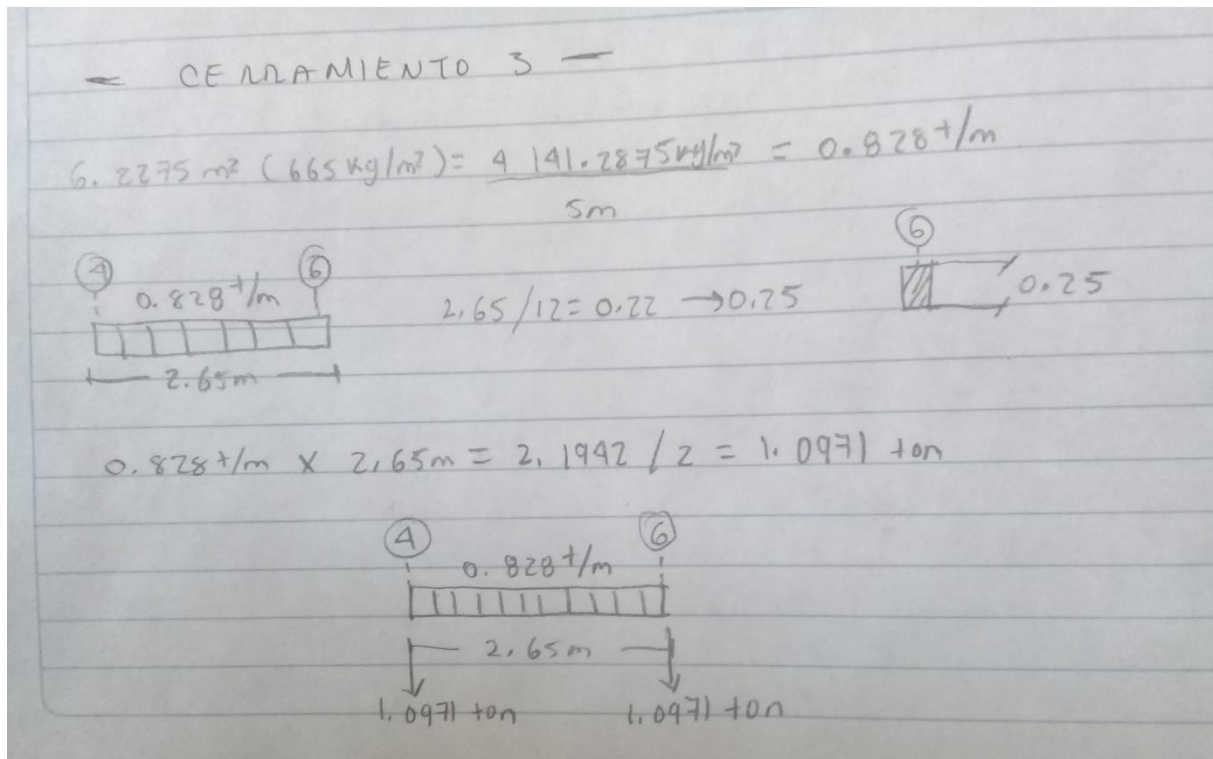 - CERRAMIENTO 3 -
6.2275 m² (665 kg/m²) = 4 141.2875 kg/m² = 0.828 t/m
5m
4 6 6
0.828 t/m 2.65/12 = 0.22 → 0.25 0.25
2.65m
0.828 t/m x 2.65m = 2.1942 / 2 = 1.0971 ton
4 6
0.828 t/m
2.65m
1.0971 ton 1.0971 ton